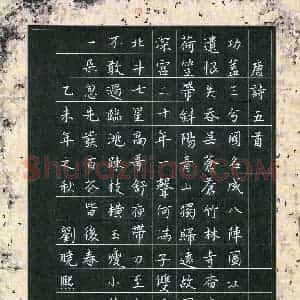 唐詩五首
功蓋三分國名成八陣圖江
遺恨失吞吳蒼蒼竹林寺杳
荷笠帶斜陽青山獨歸遠故
深宮二十年一聲何滿子雙
北斗七星高哥舒夜帶刀至
不敢過臨洮疎枝橫玉瘦小
一朵忽先變百花皆後春
乙未年之秋 劉曉熙
Shufaziliao.com